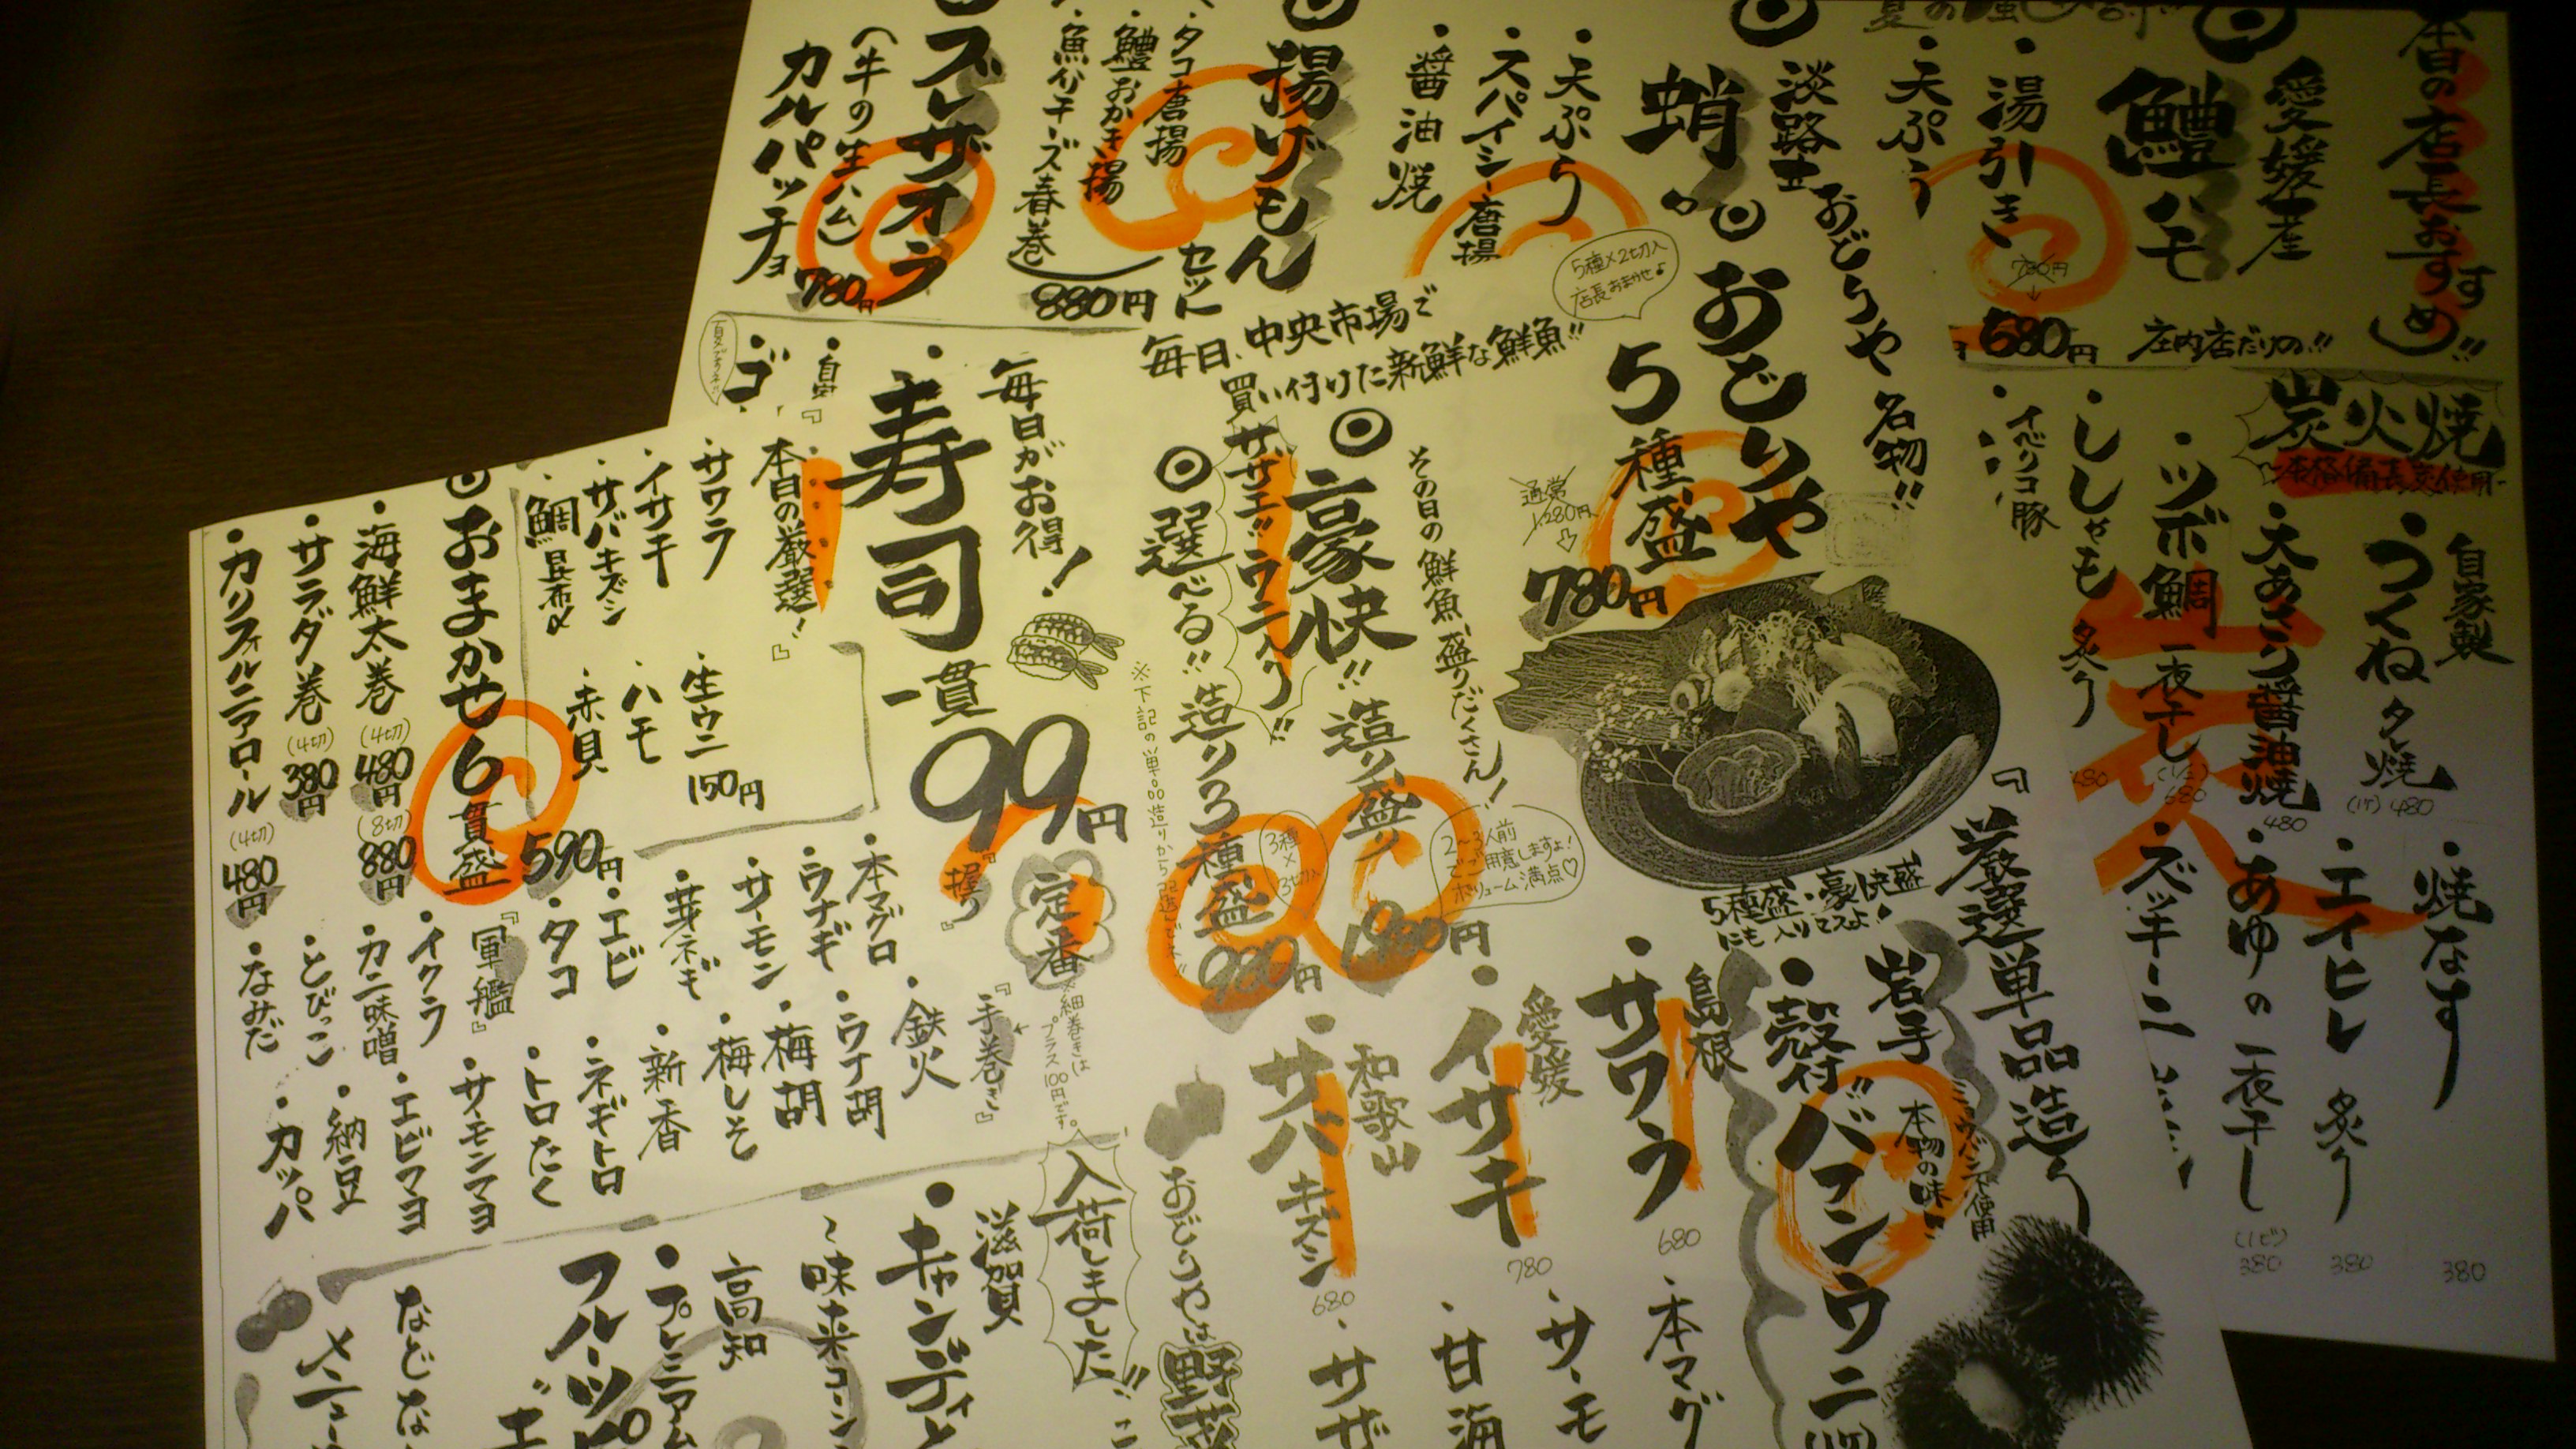 本日の店長おすすめ!!
愛媛産
鱧ハモ
・湯引き
・天ぷら
780円
580円
庄内店だけの!!
淡路
蛸
・天ぷら
・スパイシー唐揚
・醤油焼
揚げもん
・タコ唐揚
・鱧おかき揚
・魚介チーズ春巻
セット
880円
ブレザオラ
(牛の生ハム)
カルパッチョ
780円
炭火焼
自家製
・つくね夕焼
480
・大あさり醤油焼
480
・ツボ鯛一夜干し
680
・ししゃも炙り
・イベリコ豚
・焼なす
380
・エイヒレ炙り
380
・あゆの一夜干し
(1ピ)
380
・ズッキーニ
おどりや名物!!
おどりや
5種盛
5種×2切入
店長おまかせ♪
通常
1,280円
780円
毎日、中央市場で
買い付けた新鮮な鮮魚!!
その日の鮮魚、盛りだくさん!
豪快!!造り盛り
サザエ!!ウニ入り!!
2〜3人前
でご用意しますよ!
ボリューム満点♡
1,980円
選べる!!造り3種盛
3種
×
3切入
980円
※下記の単品造りから3品選んで下さい
5種盛・豪快盛
にも入りマスよ!
『厳選単品造り
岩手
・殻付!!バフンウニ
本物の味!!
島根
・サワラ
680
愛媛
・イサキ
780
和歌山
・サバキズシ
680
・本マグ
・サーモ
・甘海
・サザ
毎日がお得!
・寿司
一貫
99円
『本日の厳選!』
・サワラ
・イサキ
・サバキズシ
・鯛昆布〆
・生ウニ
150円
・ハモ
・赤貝
定番
『握り』
・本マグロ
・ウナギ
・サーモン
・芽ネギ
・エビ
・タコ
『軍艦』
・イクラ
・カニ味噌
・とびっこ
・なみだ
『手巻き』
※細巻きは
プラス100円です。
・鉄火
・ウナ胡
・梅胡
・梅しそ
・新香
・ネギトロ
・トロたく
・サーモンマヨ
・エビマヨ
・納豆
・カッパ
おまかせ6貫盛
590円
・海鮮太巻
(4切)
480円
(8切)
880円
・サラダ巻
(4切)
380円
・カリフォルニアロール
(4切)
480円
おどりやは野菜
入荷しました!!
滋賀
・キャンディ
〜味来コーン
高知
・プレミアム
フルーツ